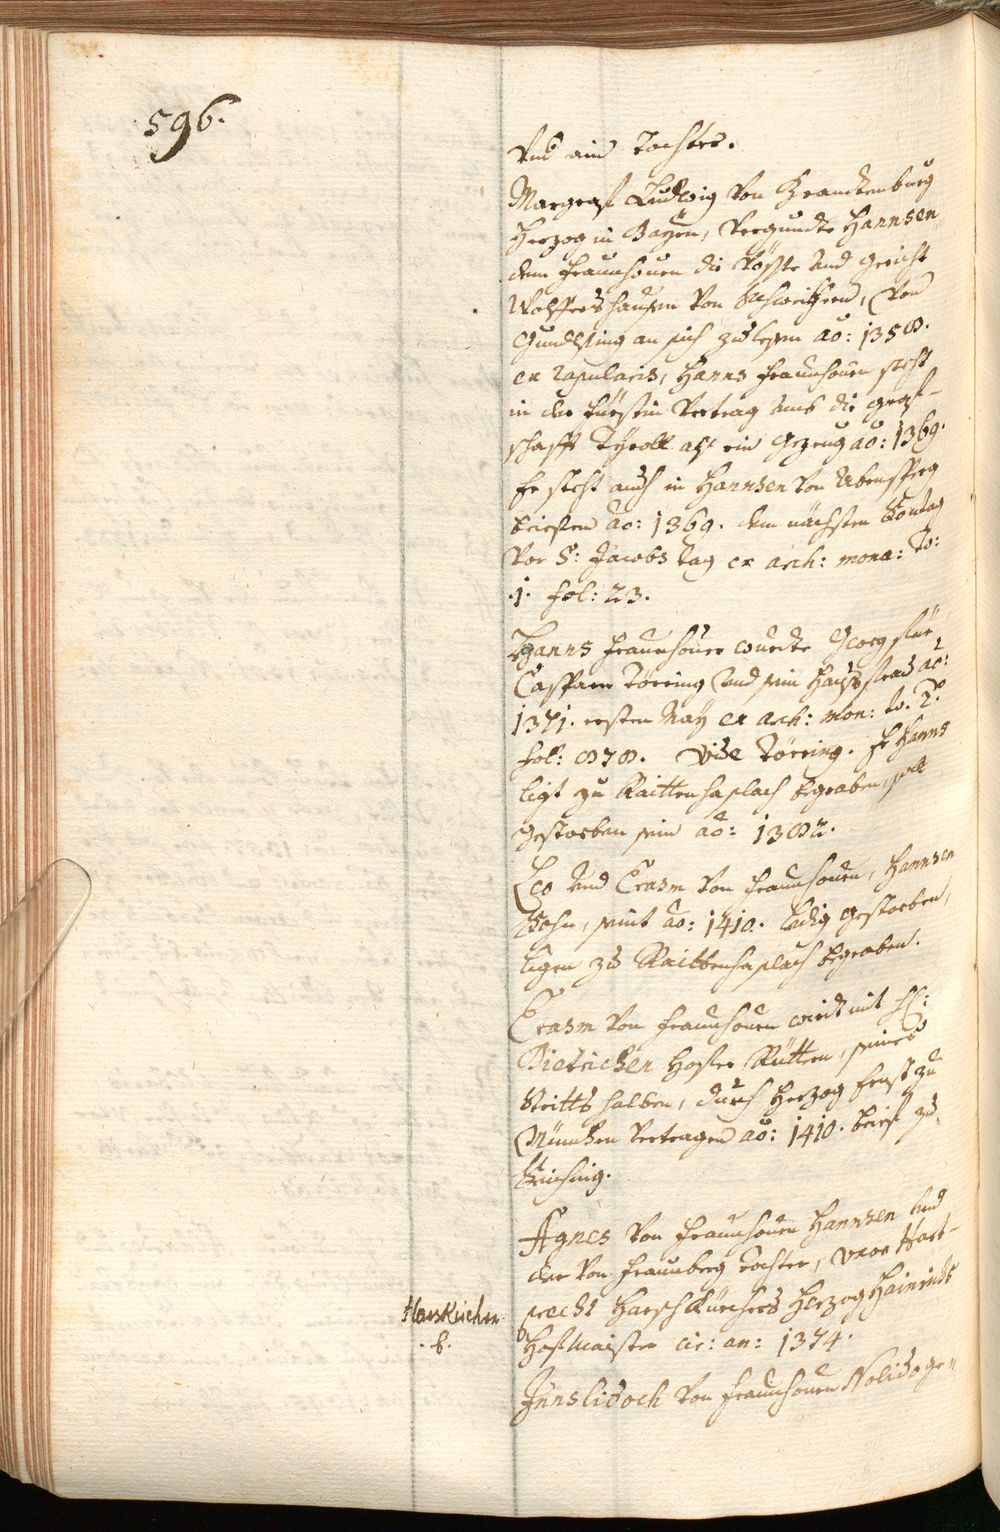 596.
Vnd ain Tochter.
Margraf Ludwig von Brandenburg
Herzog in Bayrn, vergundte Hannsen
dem Fraunhouen die Vösste und gericht
Wolffertshausen von Schweikhern, von
Gundlfing an sich zu lesen ao: 1358.
ex Capularis, Hanns Fraunhouen steht
in der Fürsten Vertrag umb die graf-
schafft Tyroll alß ein Gezeug ao: 1369.
Er steht auch in Hannsen von Abensperg
brieffen ao: 1369. dem nächsten Sontag
vor S: Jacobs tag ex arch: mona: to:
.1. fol: 23.
Hanns Fraunhouer wurdte
Caspparn Törring und sein Haußfrau ao:
1371. ersten May ex arch: mon: to. 2.
fol: 878. vide Törring. Er Hanns
ligt zu Raittenhaslach begraben, soll
gestorben sein ao: 1382.
Leo und Erasm von Fraunhouen, Hannsen
Sohn, seint ao: 1410. ledig gestorben,
ligen zu Raittenhaslach begraben.
Erasm von Fraunhouen wirdt mit H:
Dietrichen Hofer Rüttern, seines
Stritts halben, durch Herzog Ernst zu
München vertragen ao: 1410. brief zu
Agnes von Fraunhouen Hannsen und
der von Fraunberg Tochter, vxor Hart-
Harskirchen
precht Harschkürchers Herzog Hainrichs
.b.
Hofmaister cir: an: 1374.
von Fraunhouen